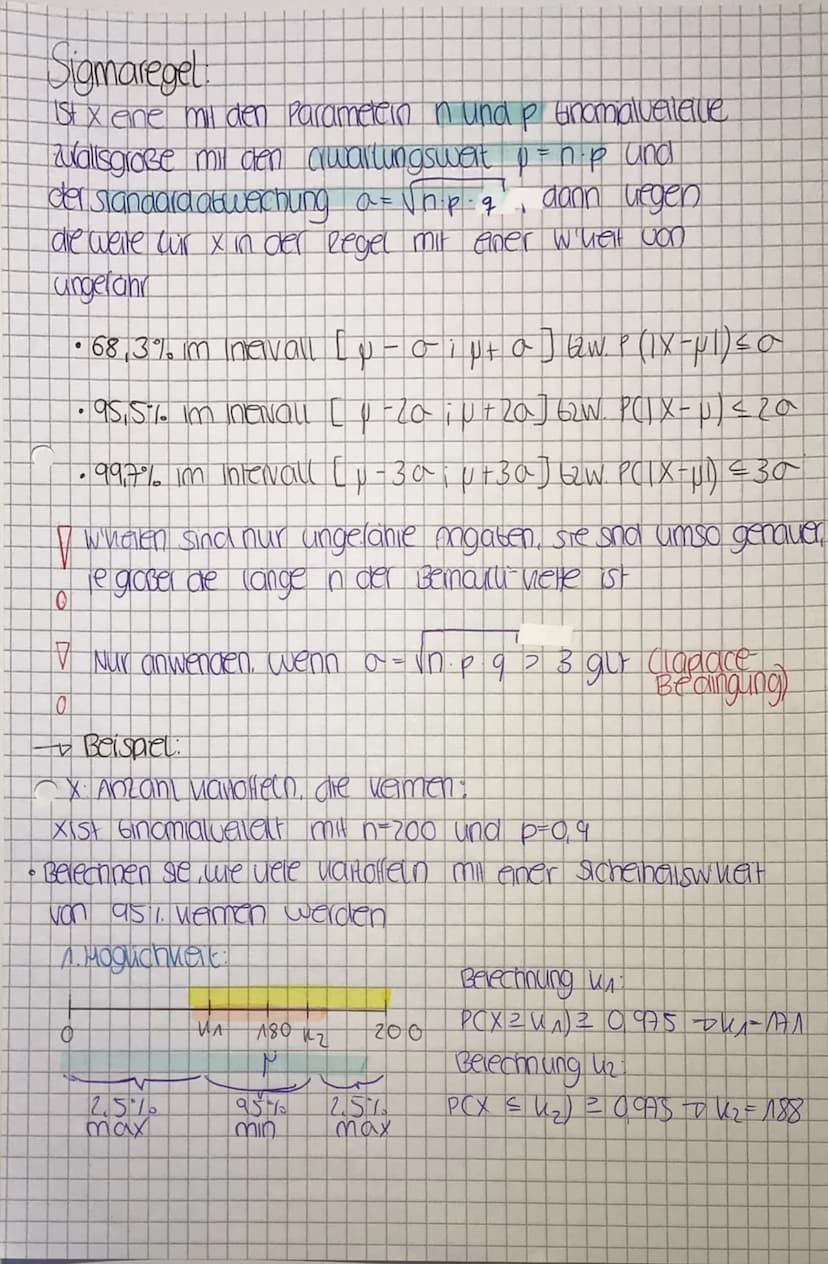 Sigmaregel:
Ist X eine mit den Parametern n und p binomialverteilte
Zufallsgröße mit den Erwartungswert μ = n·p und
der Standardabweichung σ = √n·p·q, dann liegen
die Werte für X in der Regel mit einer W'keit von
ungefähr
• 68,3% im Intervall [μ - σ; μ + σ] bzw. P(|X-μ|) ≤ σ
• 95,5% im Intervall [μ - 2σ; μ + 2σ] bzw. P(|X-μ) ≤ 2σ
• 99,7% im Intervall [μ - 3σ; μ + 3σ] bzw. P(|X-μ|) ≤ 3σ
! W'keiten sind nur ungefähre Angaben, sie sind umso genauer,
je größer die Länge n der Bernoulli-Kette ist
! Nur anwenden, wenn σ = √n·p·q > 3 gilt (Laplace-
Bedingung)
→ Beispiel:
X: Anzahl Kartoffeln, die keimen;
X ist binomialverteilt mit n=200 und p=0,9
• Berechnen sie, wie viele Kartoffeln mit einer Sicherheitsw'keit
von 95% keimen werden
1. Möglichkeit:
Berechnung k₁:
0 k₁ 180 k₂ 200
P(X ≥ k₁) ≥ 0,975 → k₁=171
μ
Berechnung k₂:
2,5% 95% 2,5%
max min max
P(X ≤ k₂) ≥ 0,975 → k₂=188